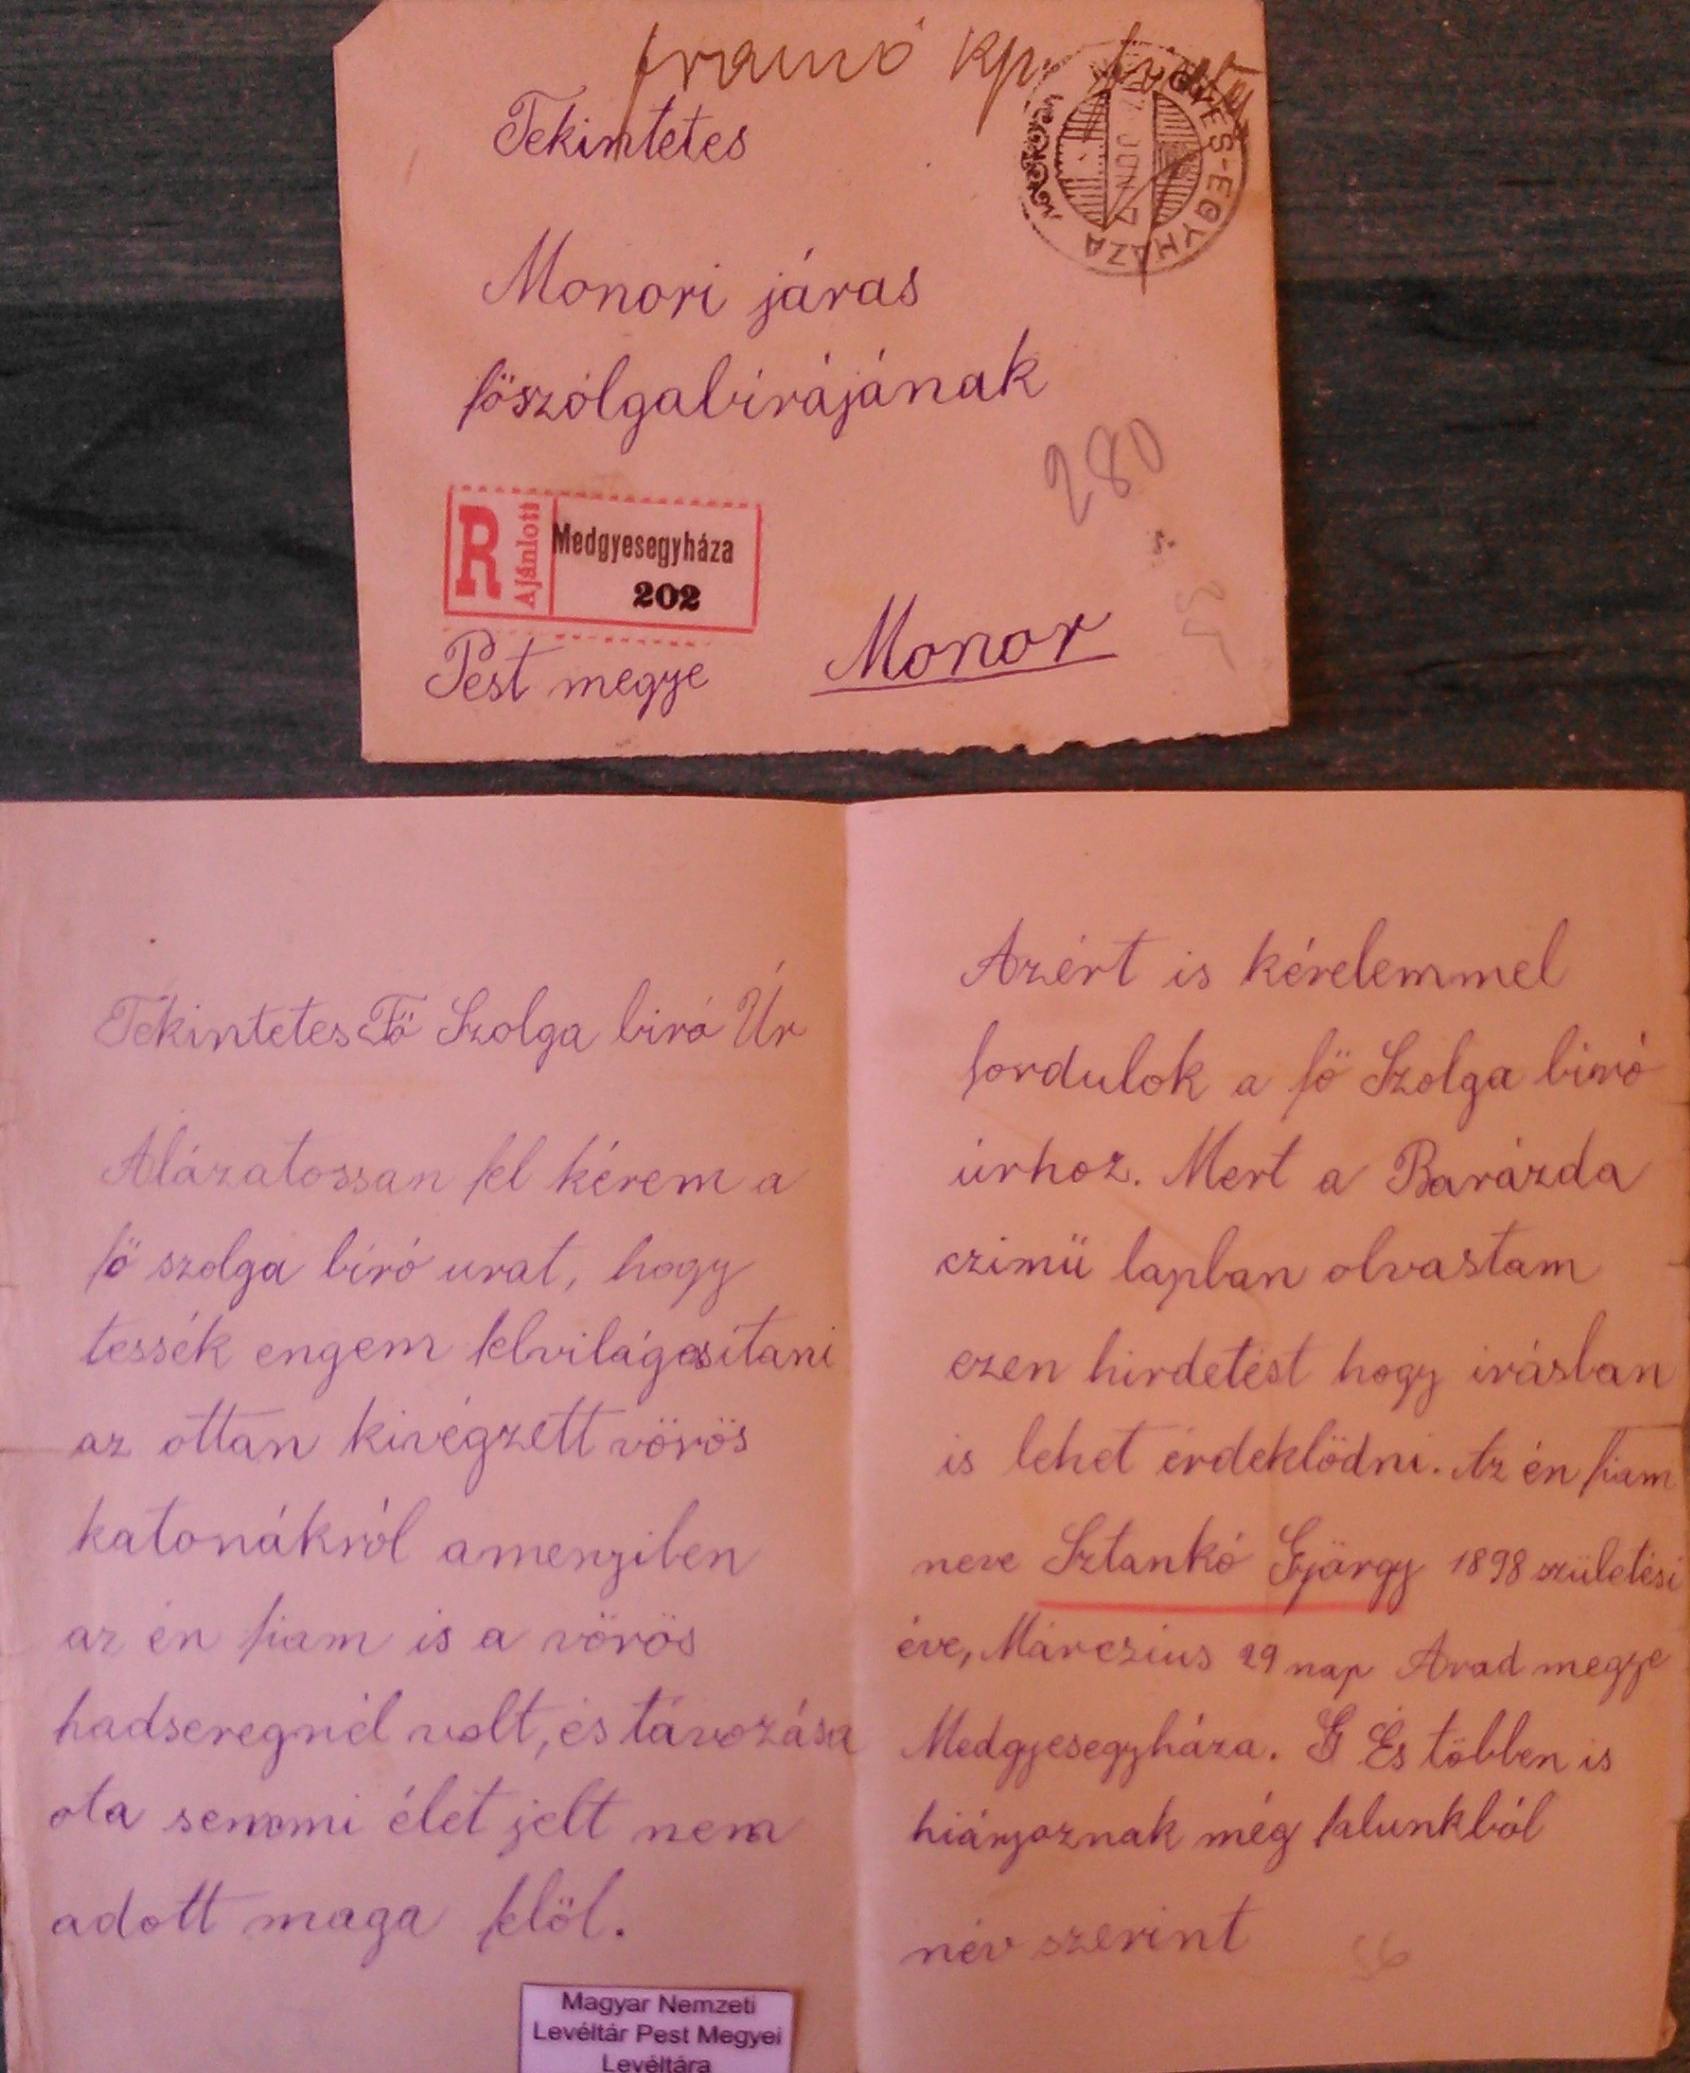 Tekintetes
Monori járas
föszolgabirájának
280
R Ajánlott Medgyesegyháza 202
Pest megye
Monor
Tekintetes Fö Szolga biró Úr
Alázatossan fel kérem a
fö szolga biró urat, hogy
tessék engem felvilágositani
az ottan kivégzett vörös
katonákról amenyiben
az én fiam is a vörös
hadseregnél volt, és távozása
ota semmi élet jelt nem
adott maga felöl.
Azért is kérelemmel
fordulok a fö Szolga biró
úrhoz. Mert a Barázda
czimü lapban olvastam
ezen hirdetést hogy irásban
is lehet érdeklödni. Az én fiam
neve Sztankó György 1898 születési
éve, Márczius 29 nap Arad megye
Medgyesegyháza. És többen is
hiányoznak még falunkból
név szerint
56
Magyar Nemzeti
Levéltár Pest Megyei
Levéltára